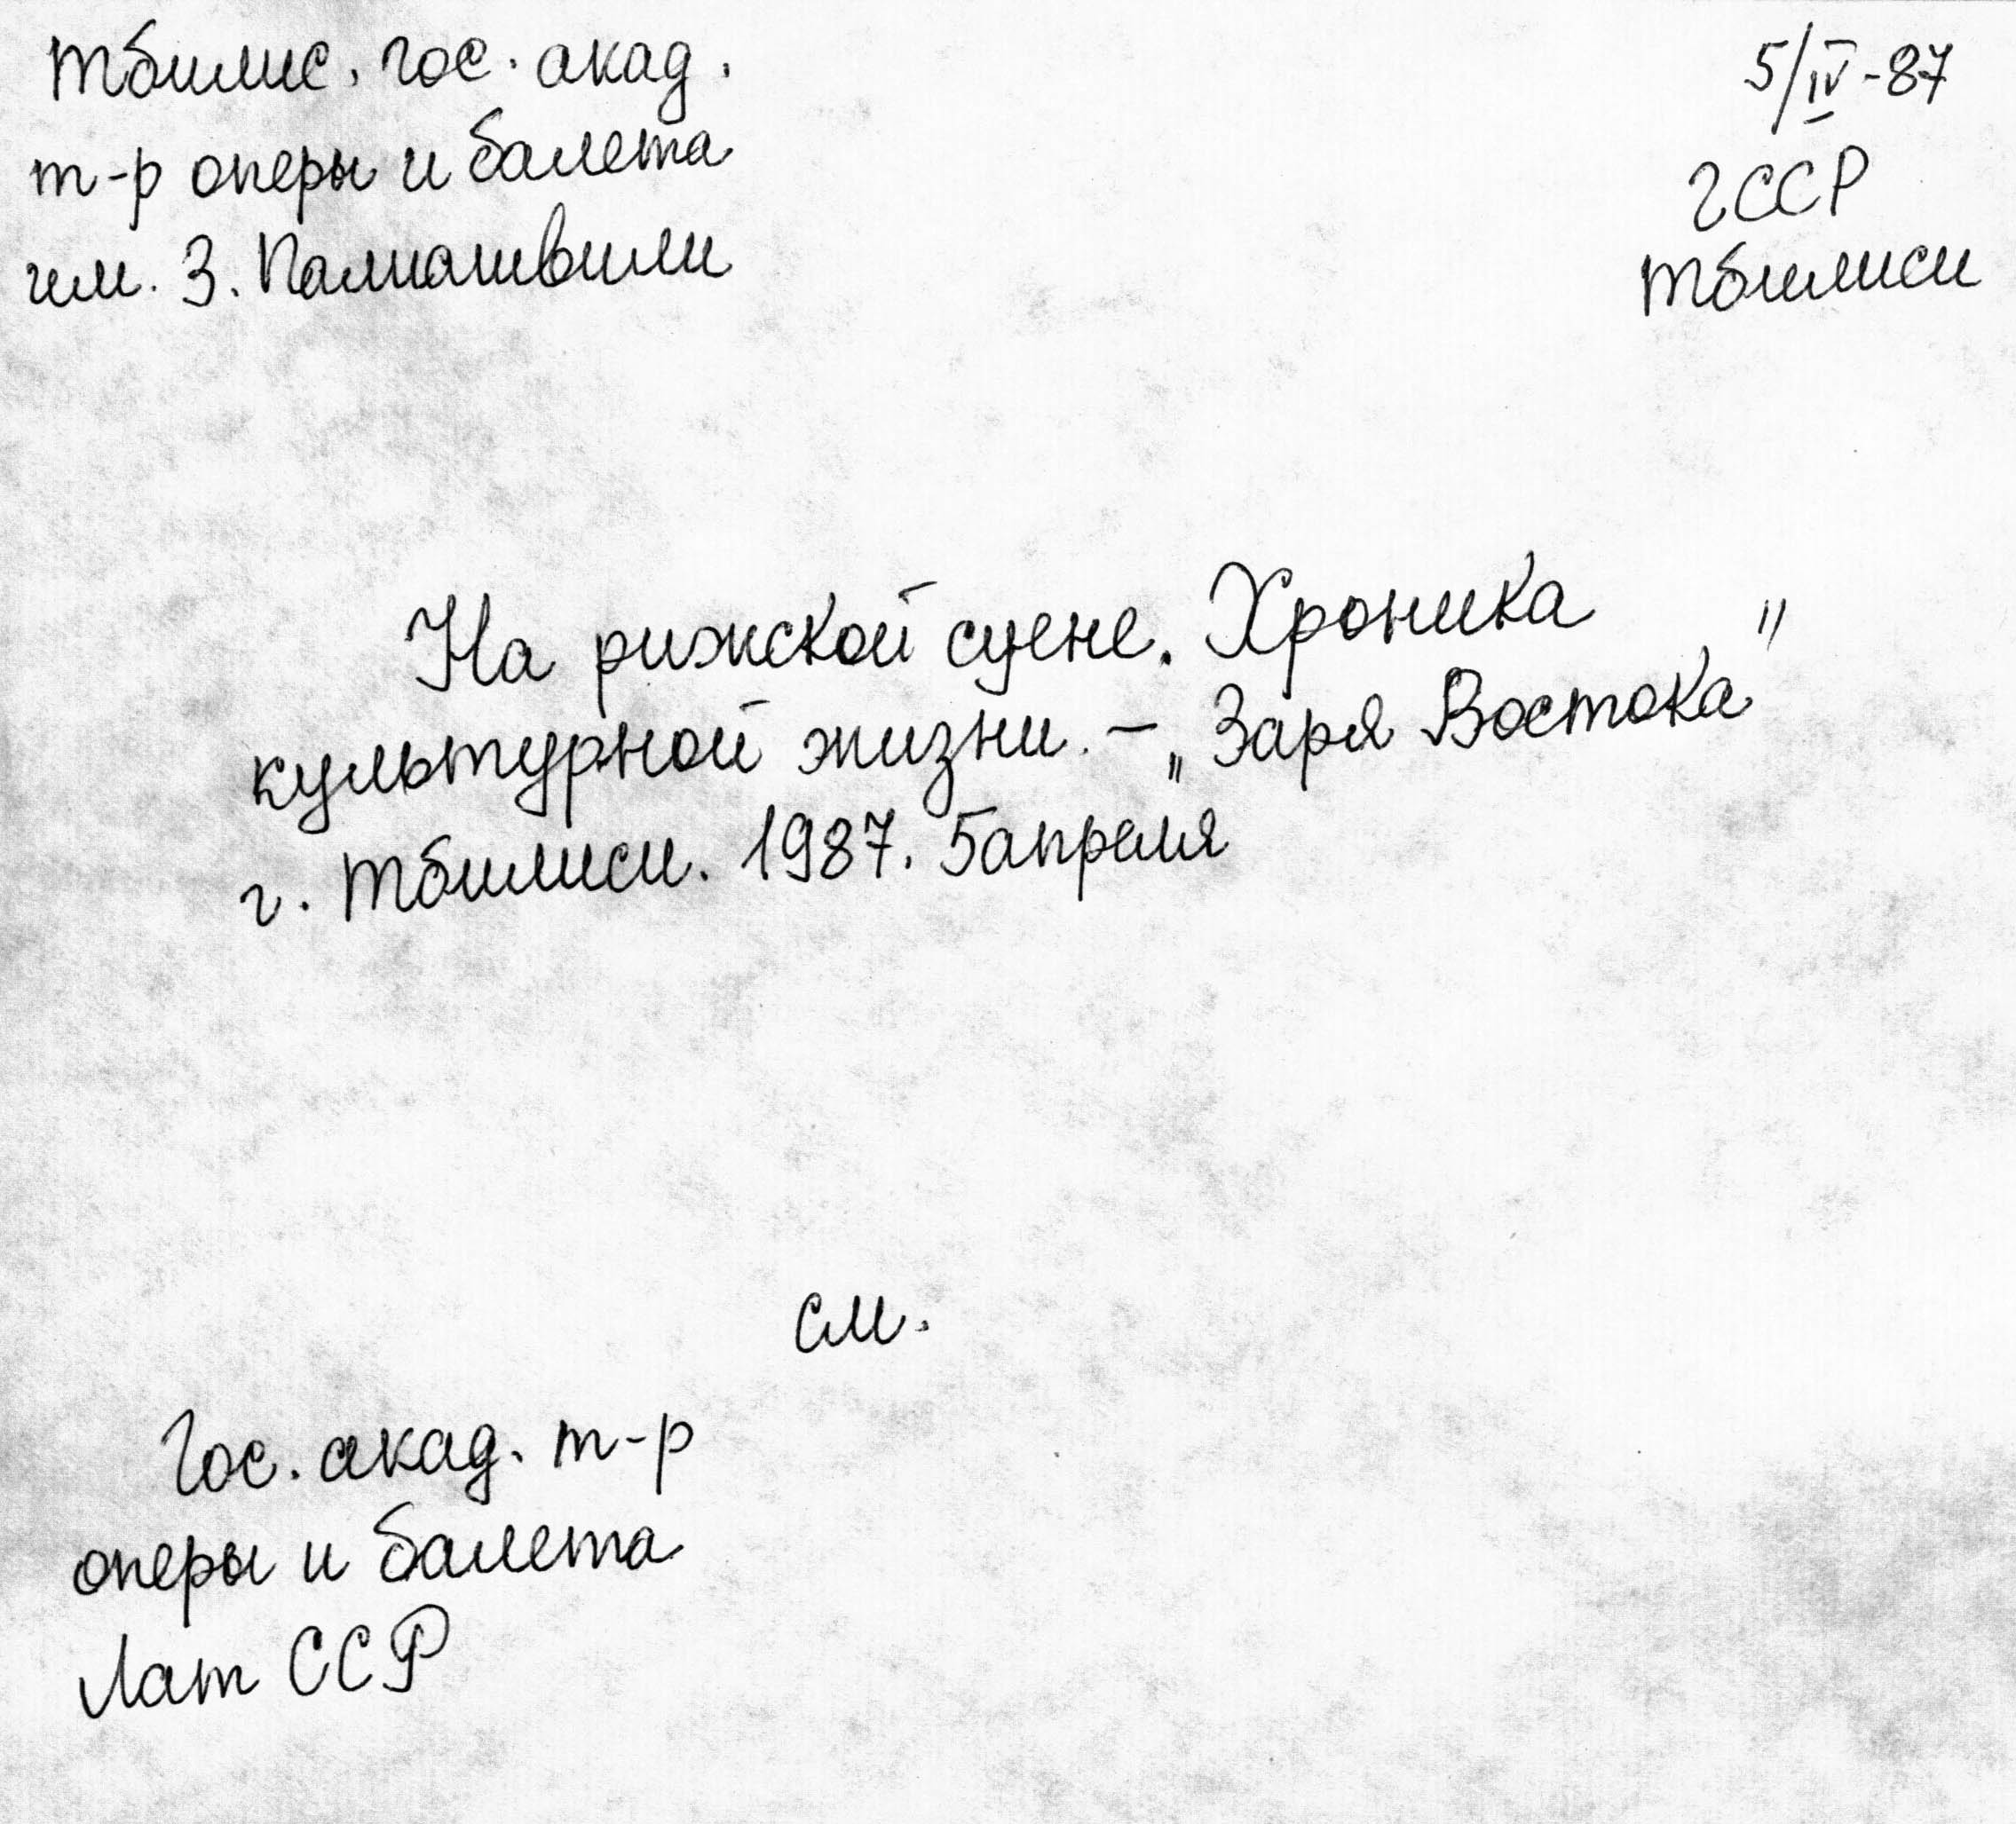 Тбилис. гос. акад.
т-р оперы и балета
им. З. Палиашвили
5/IV-87
ГССР
Тбилиси
На рижской сцене. Хроника
культурной жизни. – „Заря Востока"
г. Тбилиси. 1987. 5 апреля
см.
Гос. акад. т-р
оперы и балета
Лат ССР